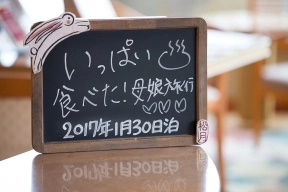 いっぱい♨
食べた！母娘旅行
♡♡♡
2017年1月30日泊
松月